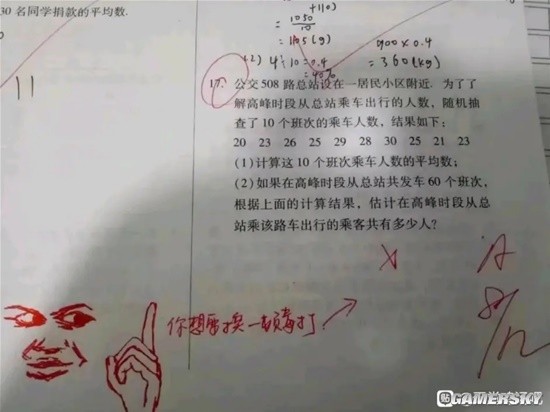 30 名同学捐款的平均数.
11
+110)
1050
10
= 105(g)
(2) 4÷10=0.4
=40%
900×0.4
=360(kg)
17. 公交 508 路总站设在一居民小区附近. 为了了
解高峰时段从总站乘车出行的人数，随机抽
查了 10 个班次的乘车人数，结果如下：
20 23 26 25 29 28 30 25 21 23
(1)计算这 10 个班次乘车人数的平均数；
(2)如果在高峰时段从总站共发车 60 个班次，
根据上面的计算结果，估计在高峰时段从总
站乘该路车出行的乘客共有多少人？
A
你想要挨一顿毒打
GAMERSKY